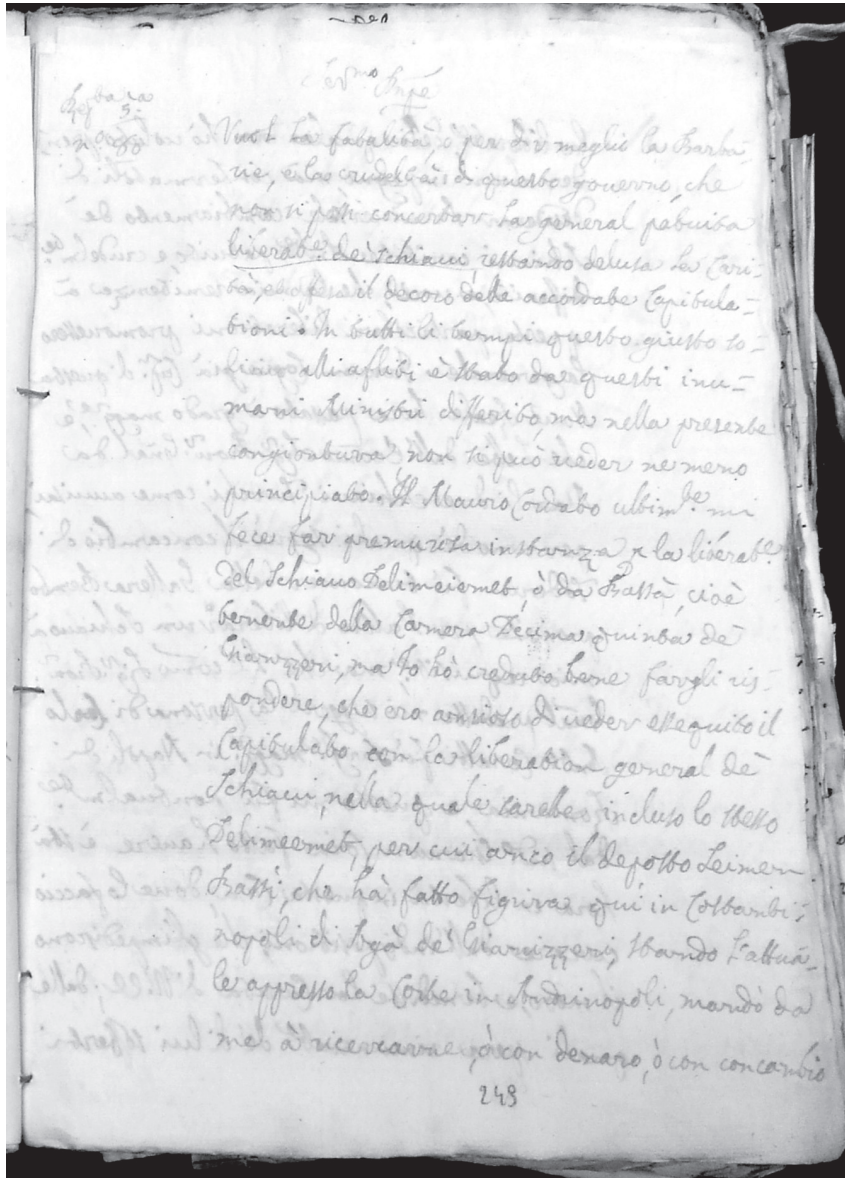 Ser.mo Prpē
Vuol la fatalità, ò per dir meglio la Barba-
rie, e la crudeltà di questo governo, che
non si possi concertar la general pattuita
liberat.e de' schiaui restando delusa la Cari-
tà, e offeso il decoro delle accordate Capitula-
tioni. In tutti li tempi questo giusto so-
lieuo alli afliti è stato da questi inu-
mani Ministri differito, ma nella presente
congiontura non si può ueder ne meno
principiato. Il Mauro Cordato ultim.te mi
fece far premurosa instanza p la liberat.e
del Schiauo Delimeiemet, ò da Bassà, cioè
tenente della Camera Decima quinta de
Gianizzeri, ma Io hò creduto bene fargli ris-
pondere, che ero ansioso di ueder essequito il
Capitulato con la liberation general de
Schiaui, nella quale sarebe incluso lo stesso
Delimeemet, per cui anco il deposto Seimen
Bassi, che hà fatto figura qui in Costanti-
nopoli di Agà de' Gianizzeri, stando l'attua-
le appresso la Corte in Andrinopoli, mandò da
me à ricercarne, ò con denaro, ò con concambio
249